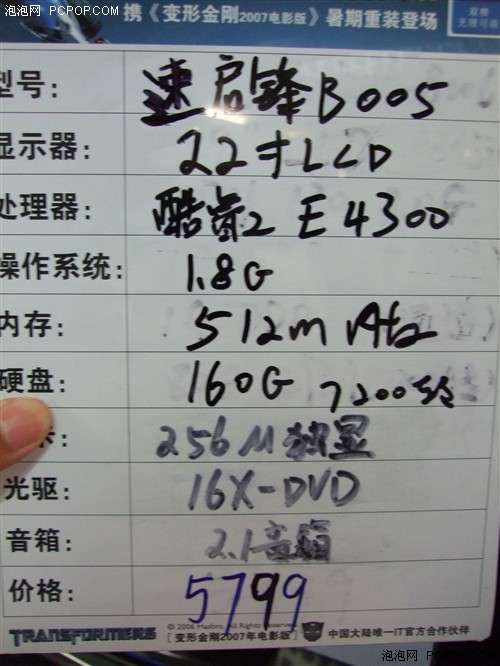 泡泡网 PCPOP.COM
携《变形金刚2007电影版》暑期重装登场
型号: 速启锋B005
显示器: 22寸LCD
处理器: 酷睿2 E4300
操作系统: 1.8G
内存: 512m
硬盘: 160G 7200转
卡: 256M独显
光驱: 16X-DVD
音箱: 2.1音箱
价格: 5799
TRANSFORMERS
© 2006 Hasbro. All Rights Reserved.
[变形金刚2007年电影版]
中国大陆唯一IT官方合作伙伴
泡泡网 PCPOP.COM